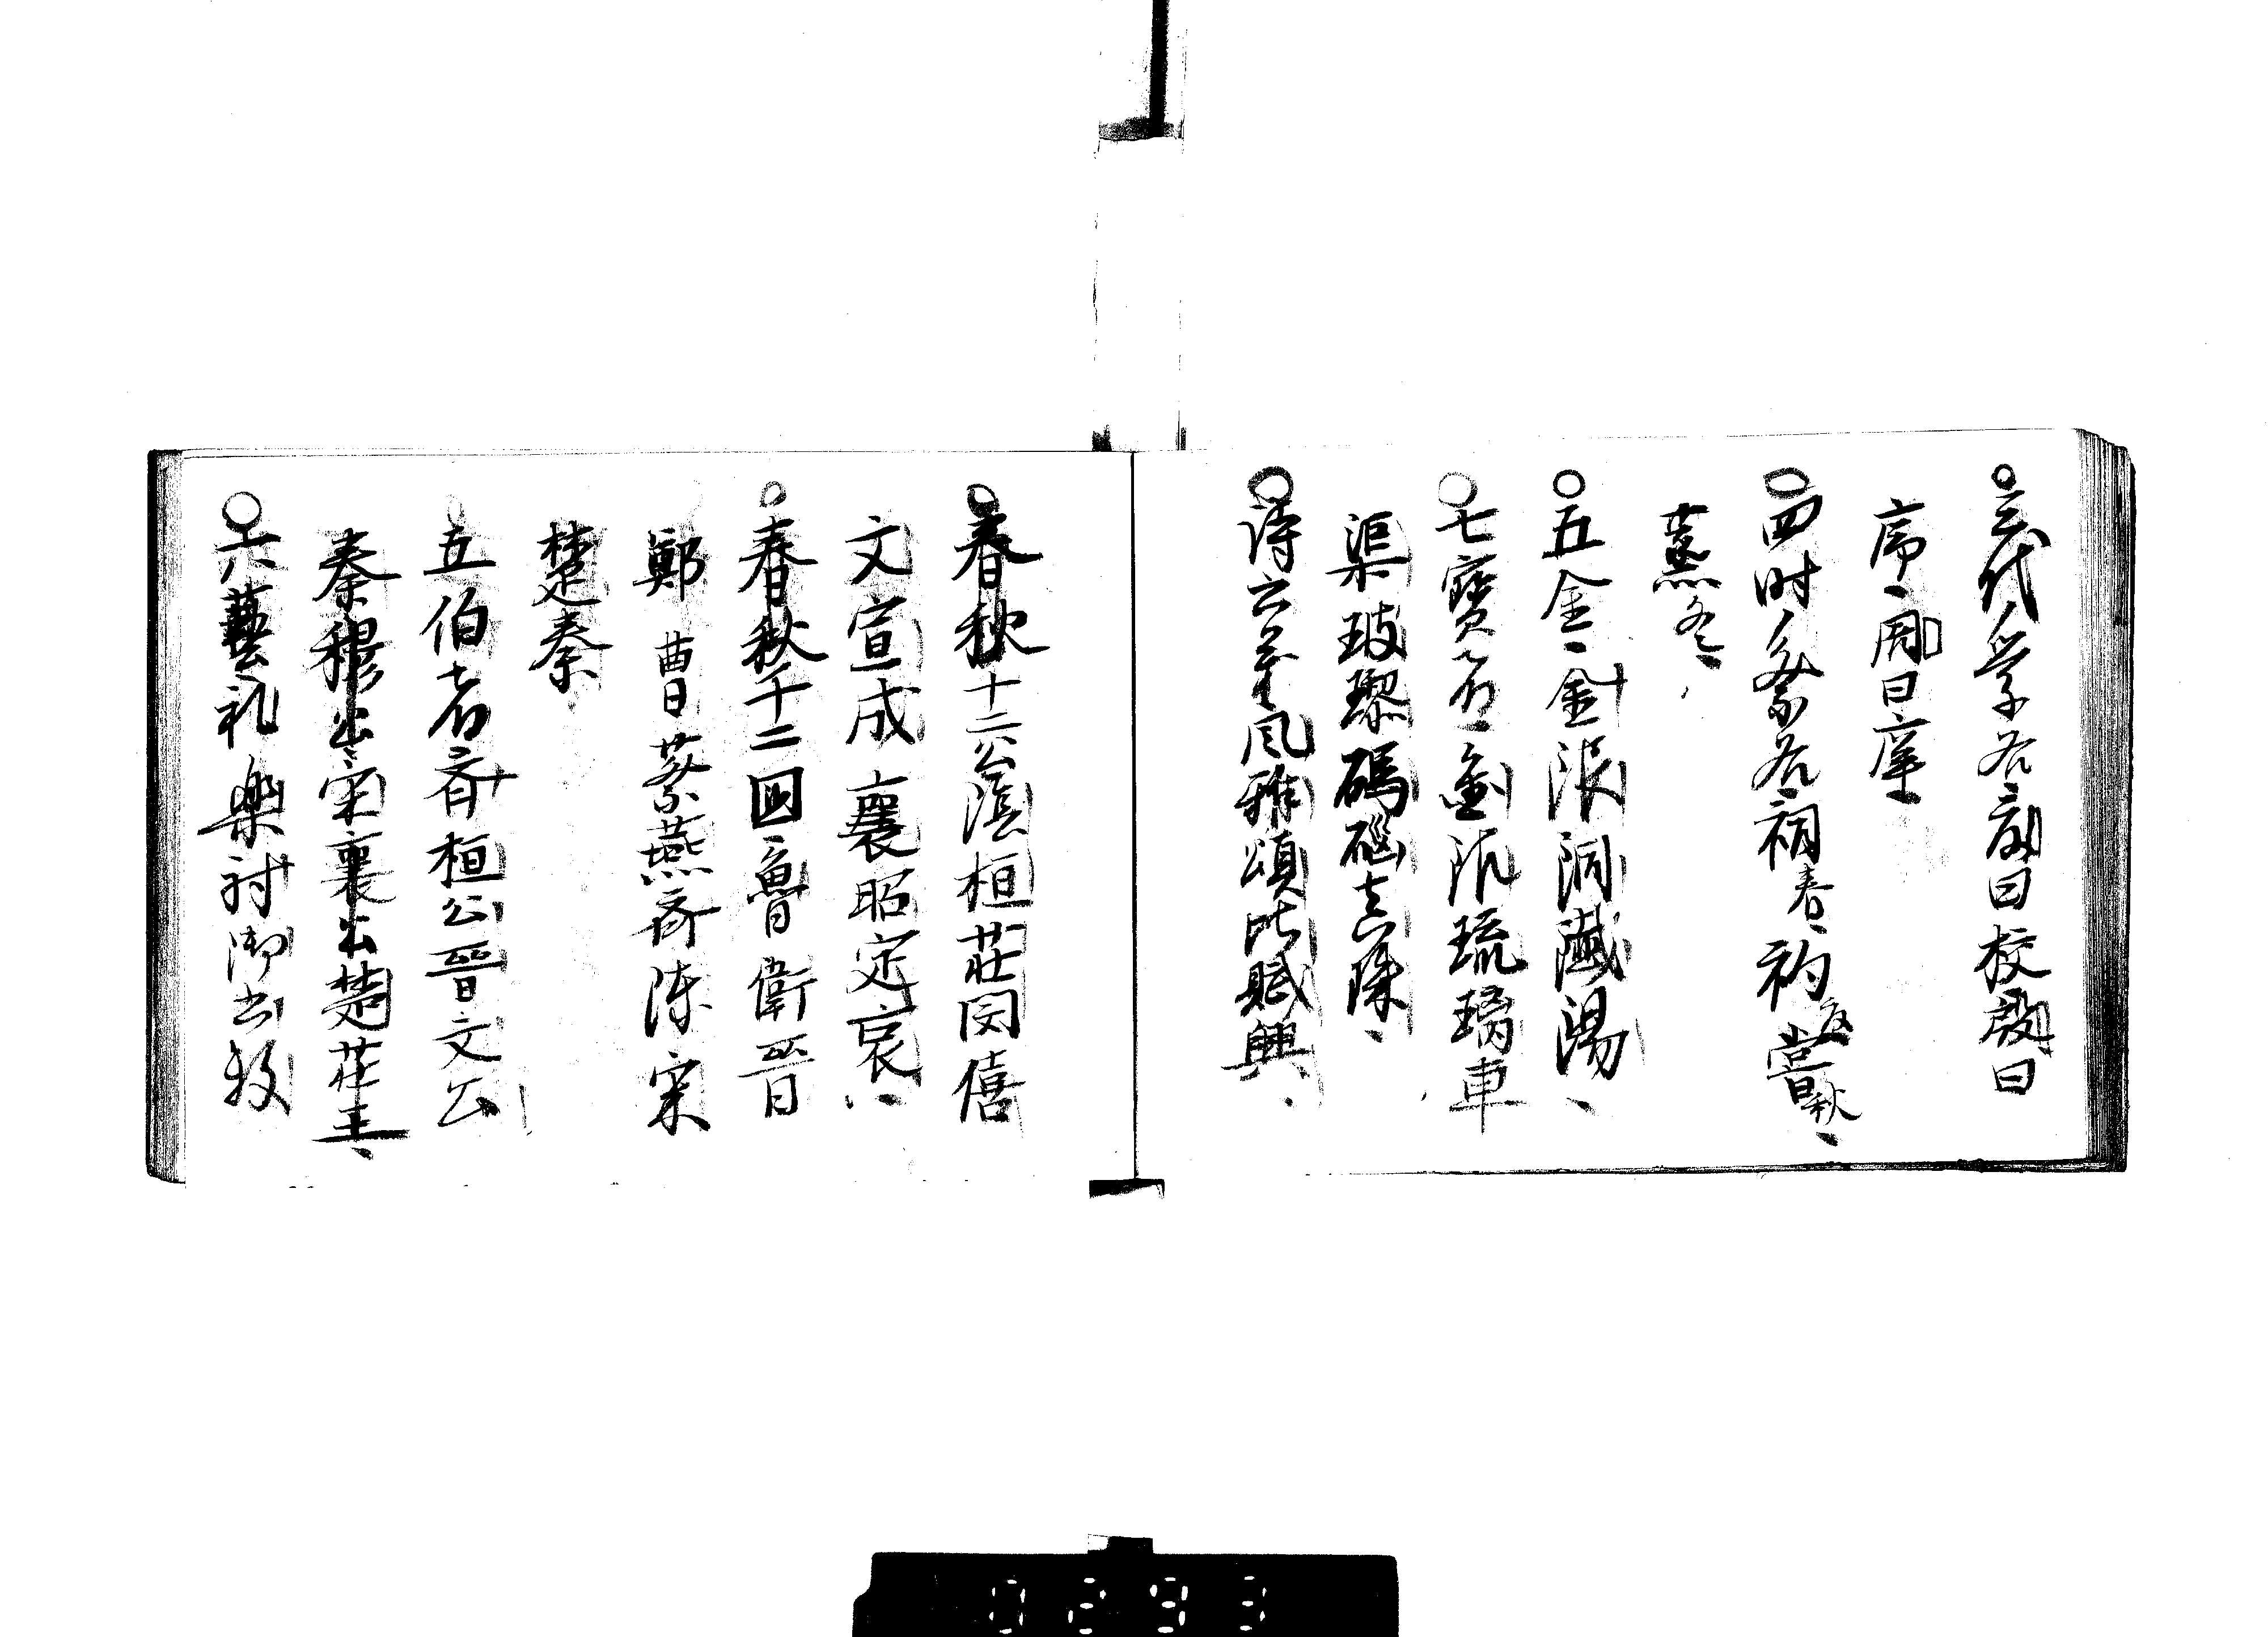 ○三代学名夏曰校殷曰
序、周曰庠、
○四时祭名祠春、礿夏嘗秋、
蒸冬、
○五金、金銀銅鐵錫、
○七寳名、金銀琉璃車
渠玻瓈碼碯真珠、
○诗六義風雅頌比賦興、
○春秋十二公隱桓莊閔僖
文宣成襄昭定哀、
○春秋十二国魯衛晋
鄭曹蔡燕斉陳宋
楚秦、
五伯者斉桓公晋文公
秦穆公宋襄公楚荘王、
○六藝礼楽射御书数
0293